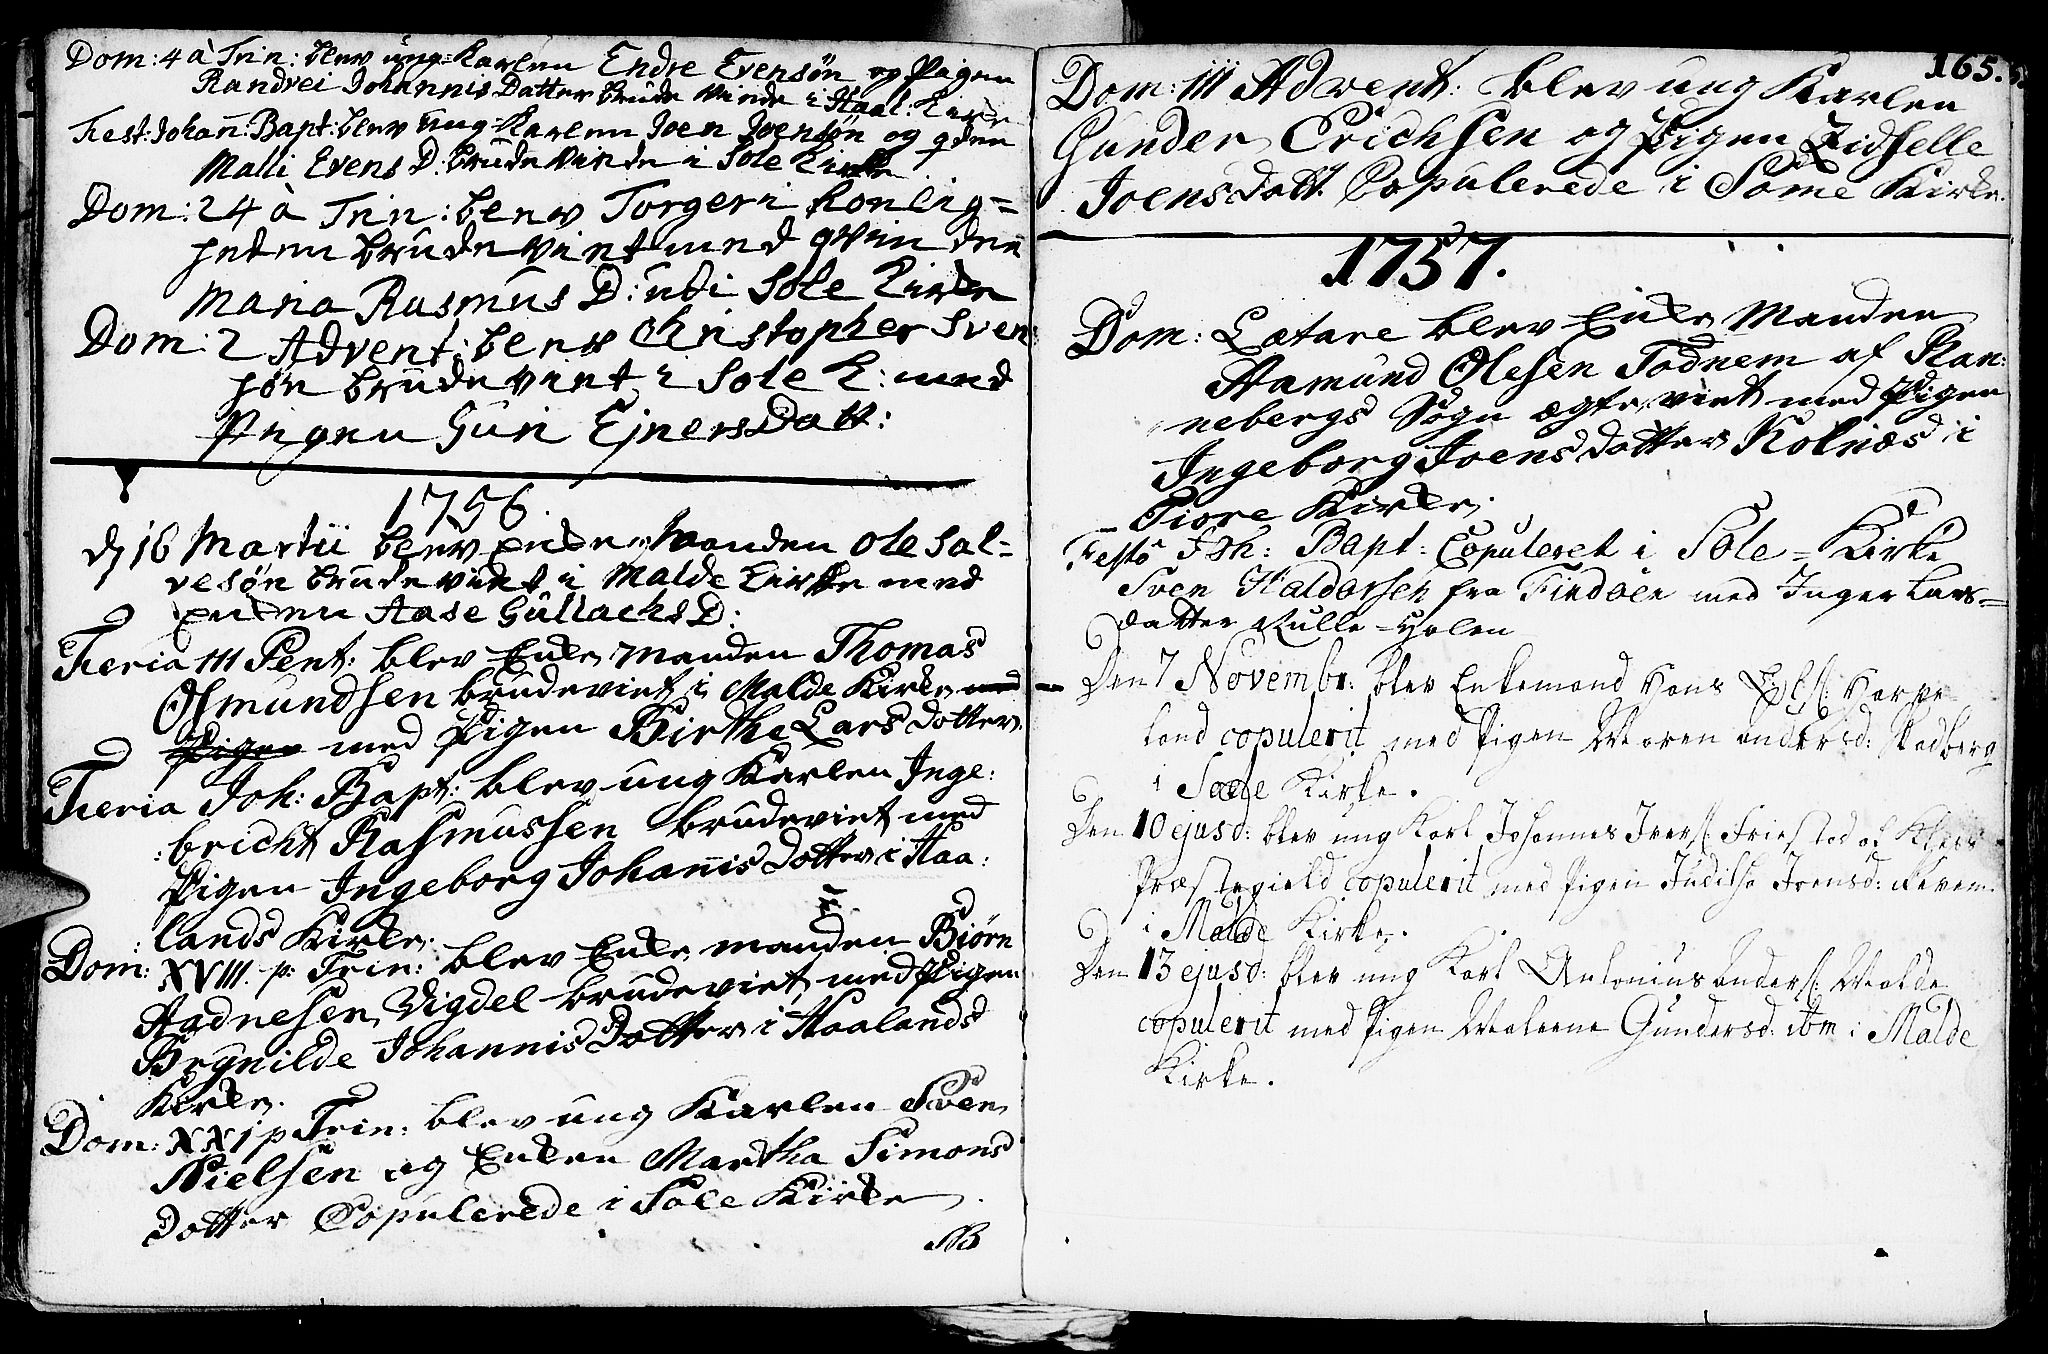 Dom: 4 à Trin: blev ung-Karlen Endre Evensøn og Pigen
Randvei Johannis Datter brude viede i Haal: Kirke
Fest: Johan: Bapt: blev ung-Karlen Joen Joensøn og
Malli Evens D: brude viede i Sole Kirke
Dom: 24 à Trin: blev Torger
brude viet med qvin den
Maria Rasmus D: udi Sole Kirke
Dom: 2 Advent: blev Christopher Sven
søn brude viet i Sole K: med
Pigen Guri EjnersDatt:
1756.
d 16 Martii blev Enke Manden Ole Sal-
vesøn brude viet i Malde Kirke med
Enken Aase Gullachs D:
Feria III Pent: blev Enke Manden Thomas
Osmundsen brudeviet i Malde Kirke med
Pigen med Pigen Birthe Lars Dotter.
Feria Joh: Bapt: blev ung Karlen Inge:
bricht Rasmussen brudeviet med
Pigen Ingeborg Johannis Dotter i Haa:
lands Kirke.
Dom: XVIII. p: Trin: blev Enke manden Biørn
Aadnesen Vigdel brudeviet med Pigen
Brynilde Johannis Dotter i Haalands
Kirke.
Dom: XXI p Trin: blev ung Karlen Sven
Nielsen og Enken Martha Simons
Dotter Copulerede i Sole Kirke
165.
Dom: III Advent: blev ung Karlen
Gunder Erichsen og Pigen Zidselle
Joens Dott. Copulerede i Some Kirke.
1757.
Dom: Lætare blev Enke Manden
Aamund Olesen Todnem af Ran:
nebergs Sogn ægte viet med Pigen
Ingeborg Joens dotter Kolnæs i
Tiore Kirke.
Festo Joh: Bapt: Copuleret i Sole-Kirke
Sven Haldorsen fra Findøen med Inger Lars-
datter Kulle-Holen
Den 7 Novembr: blev Enkemand Hans
land copulerit med Pigen Maren Andersd: Stadberg
i Soele Kirke.
Den 10 ejusd: blev ung Karl Johannes Ivers: Friestad af Kleps
Præstegield copulerit med Pigen Judithe Joensd: Revem
i Malde Kirke.
Den 13 ejusd: blev ung Karl Antonius Anders: Malde
copulerit med Pigen Maleene Gundersd: ibm i Malde
Kirke.